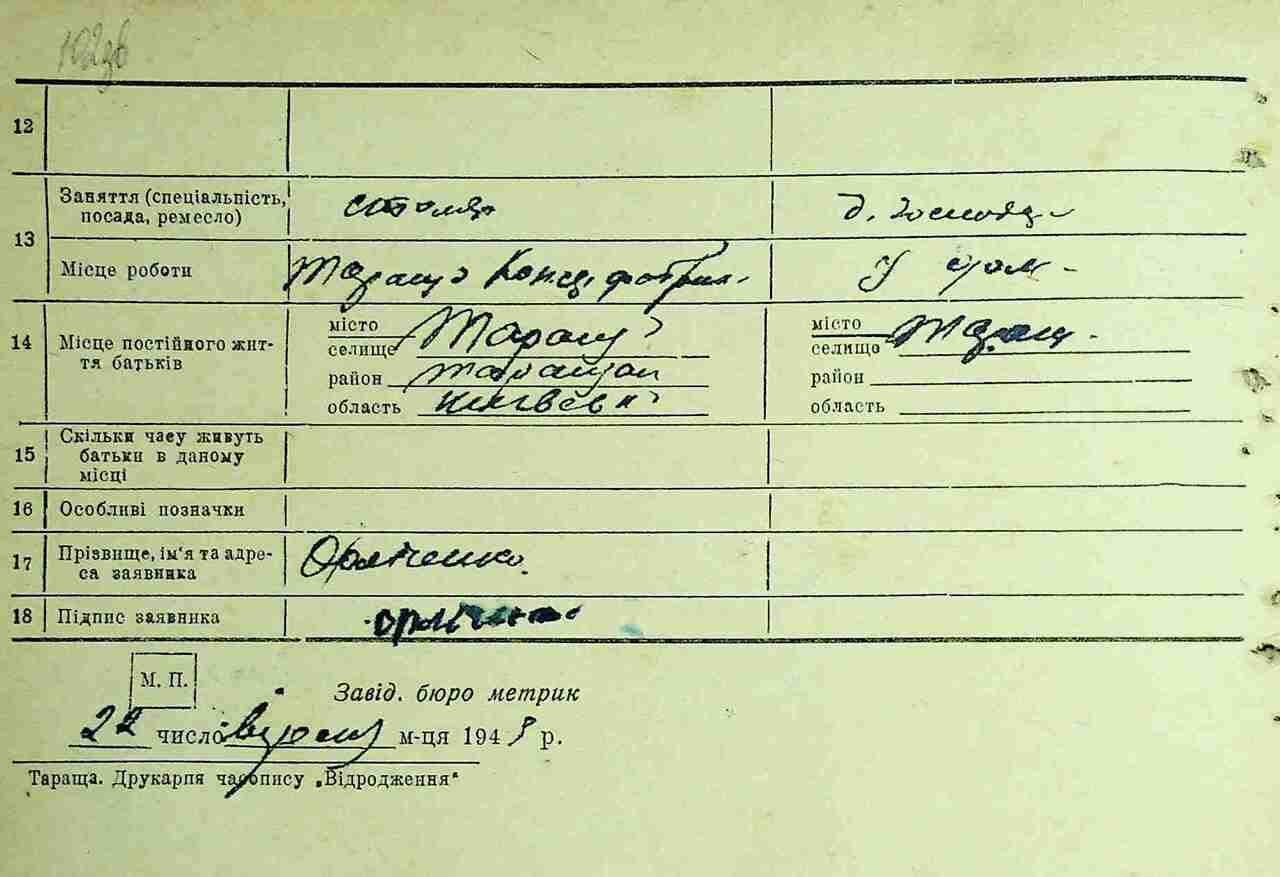 12
13 Заняття (спеціальність, столяр д. господ.
посада, ремесло)
Місце роботи Тараща у дом-
14 Місце постійного жит- місто Тараща місто Таращ.
тя батьків селище селищо
район Таращан район
область Київськ область
15 Скільки часу живуть
батьки в даному
місці
16 Особливі позначки
17 Прізвище, ім'я та адре- Орліченко.
са заявника
18 Підпис заявника Орліченко
М. П.
Завід. бюро метрик
22 число м-ця 194 р.
Тараща. Друкарня часопису „Відродження"